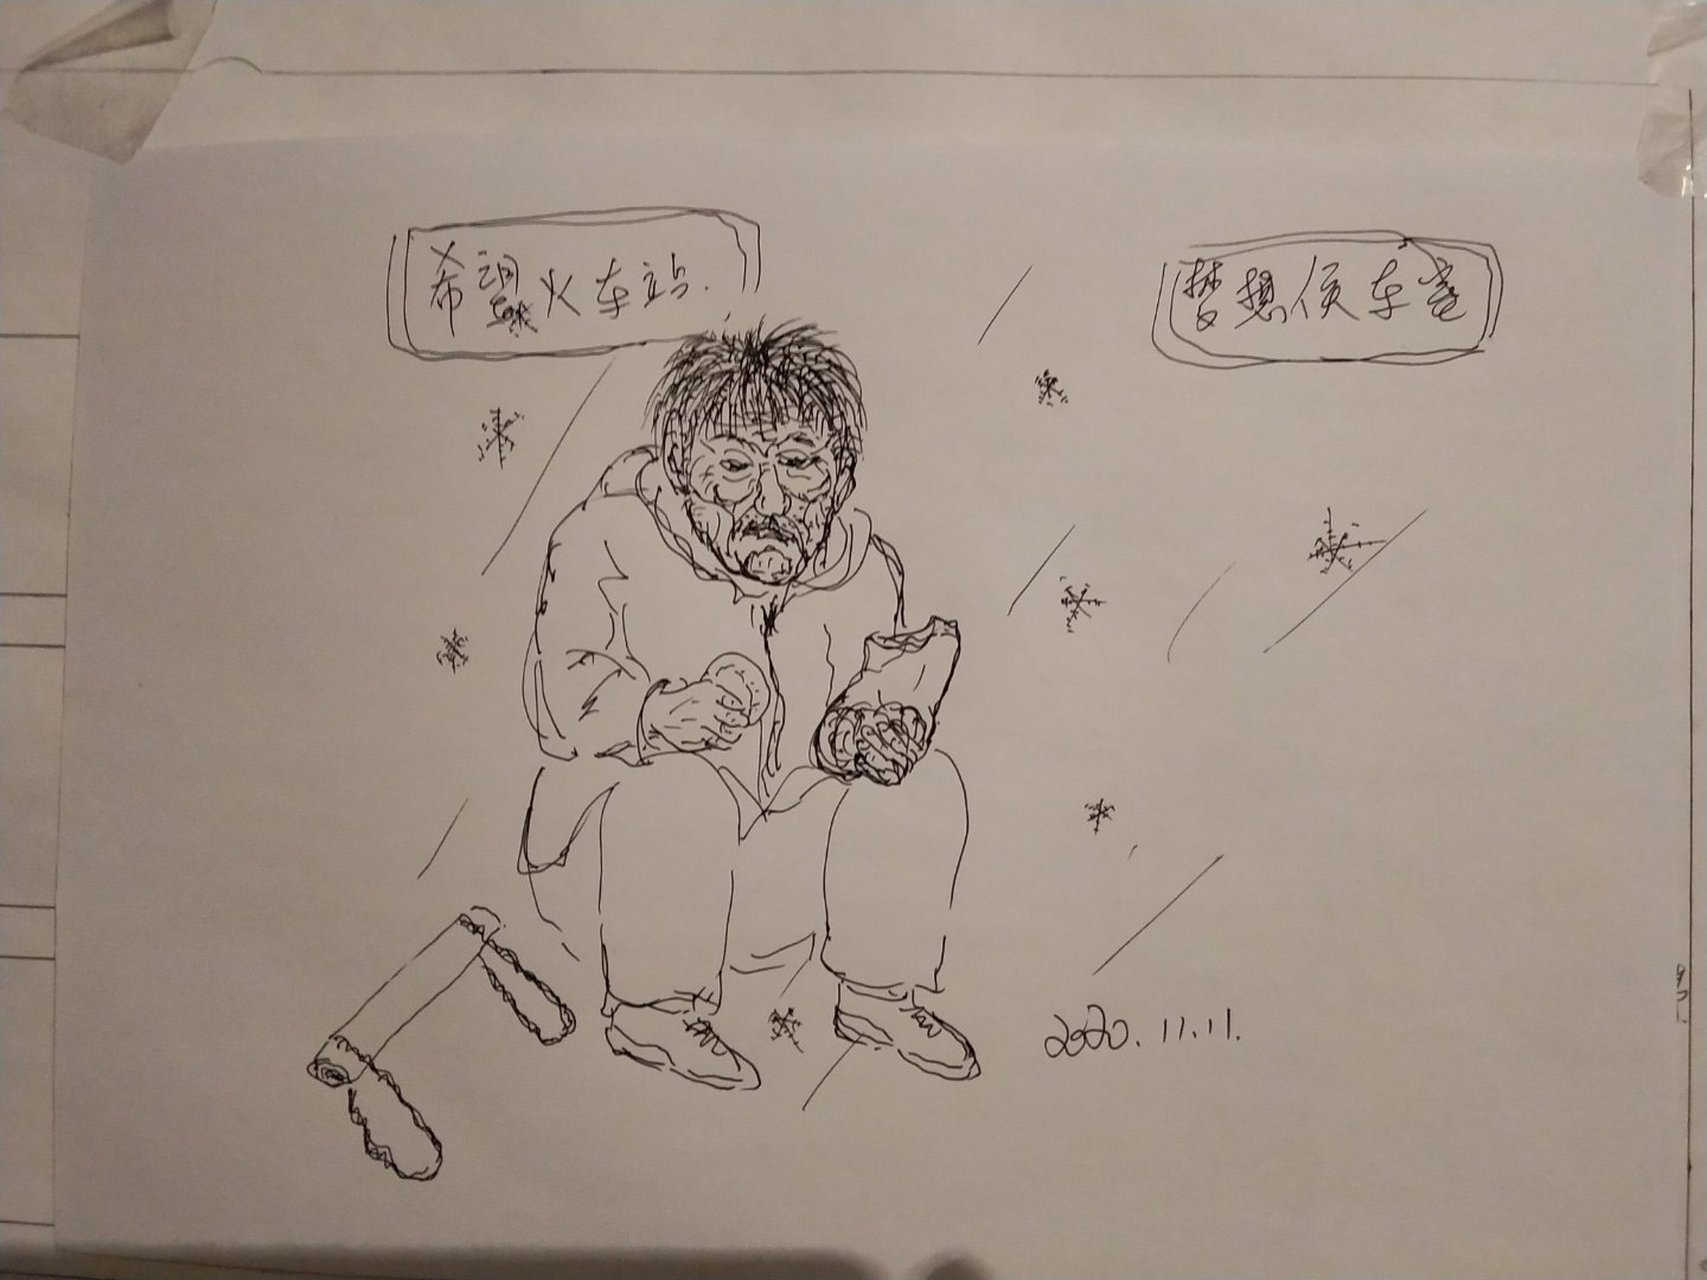 希望火车站.
梦想候车室
2020.11.11.